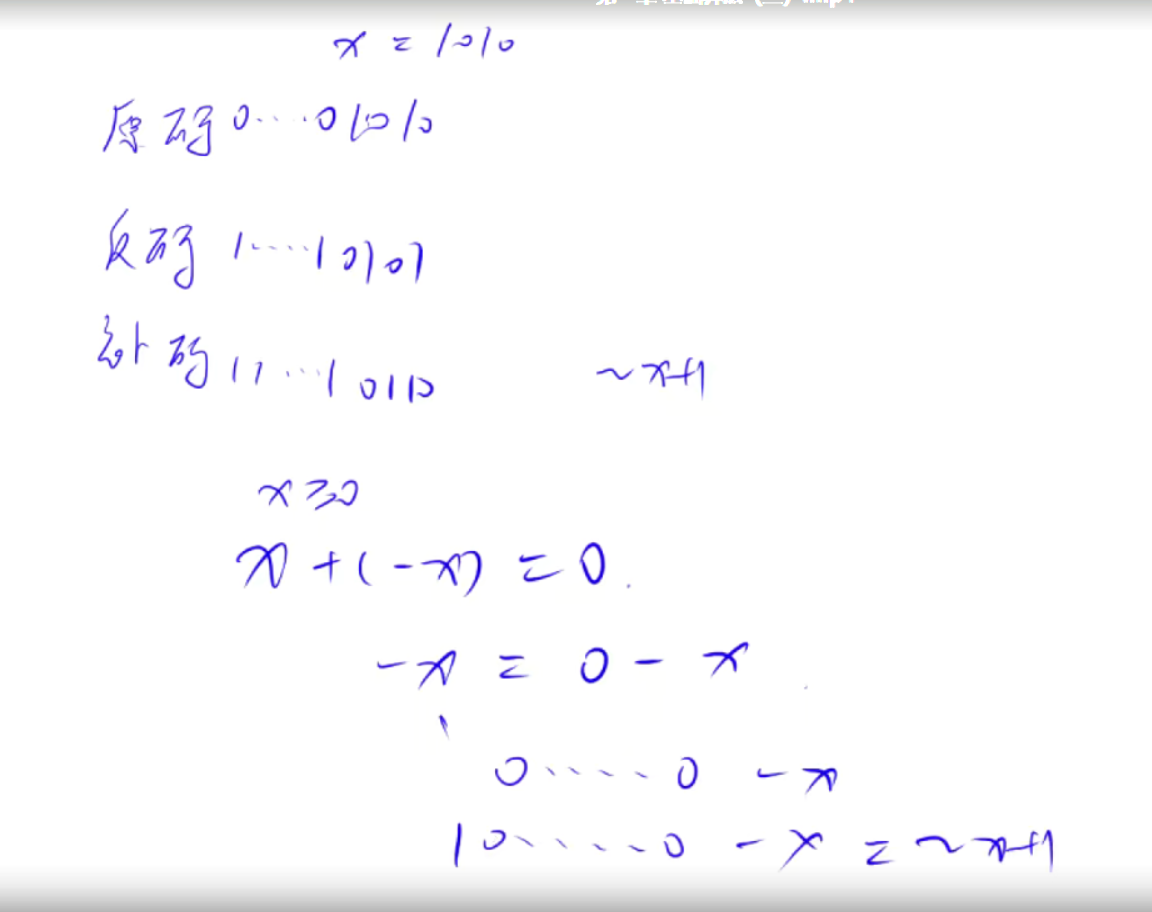 x = 1010
原码 0....01010
反码 1....10101
补码 11...10110 ~x+1
x≥0
x+(-x) = 0.
-x = 0 - x
0....0 -x
10.....0 - x = ~x+1